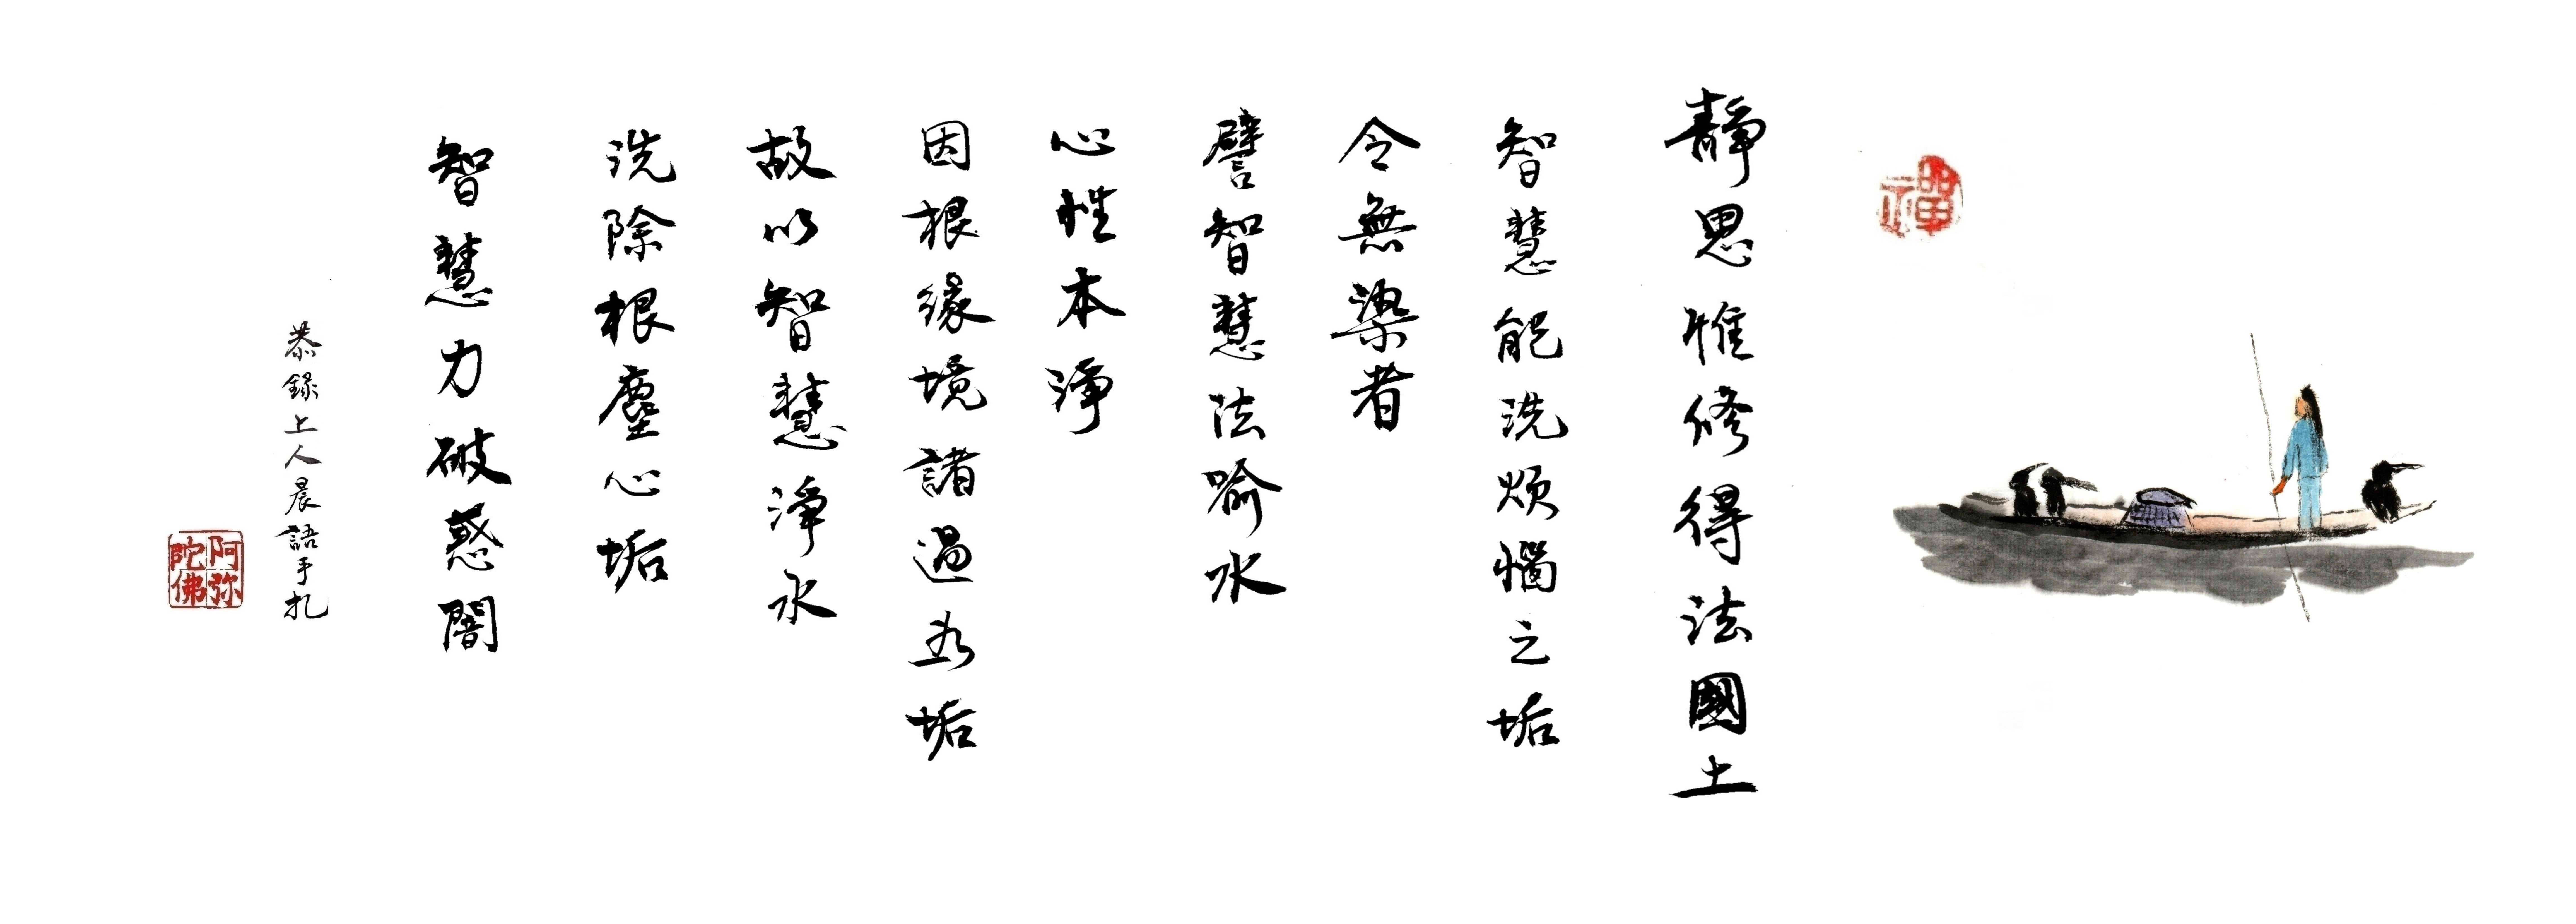 禪
靜思惟修得法國土
智慧能洗煩惱之垢
令無染者
譬智慧法喻水
心性本淨
因根緣境諸過為垢
故以智慧淨水
洗除根塵心垢
智慧力破惑闇
恭錄上人晨語手札
阿弥陀佛